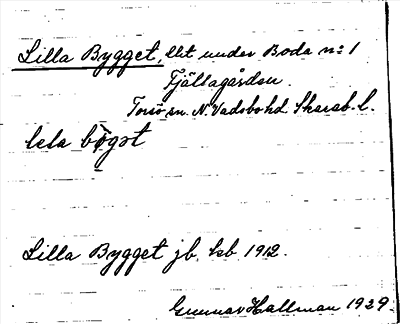 Lilla Bygget, lht under Boda nº 1
Fjällagården.
Torsö sn. N. Vadsbo hd. Skarab. l.
lela bögət
Lilla Bygget jb, ksb 1912.
Gunnar Hallman 1929.